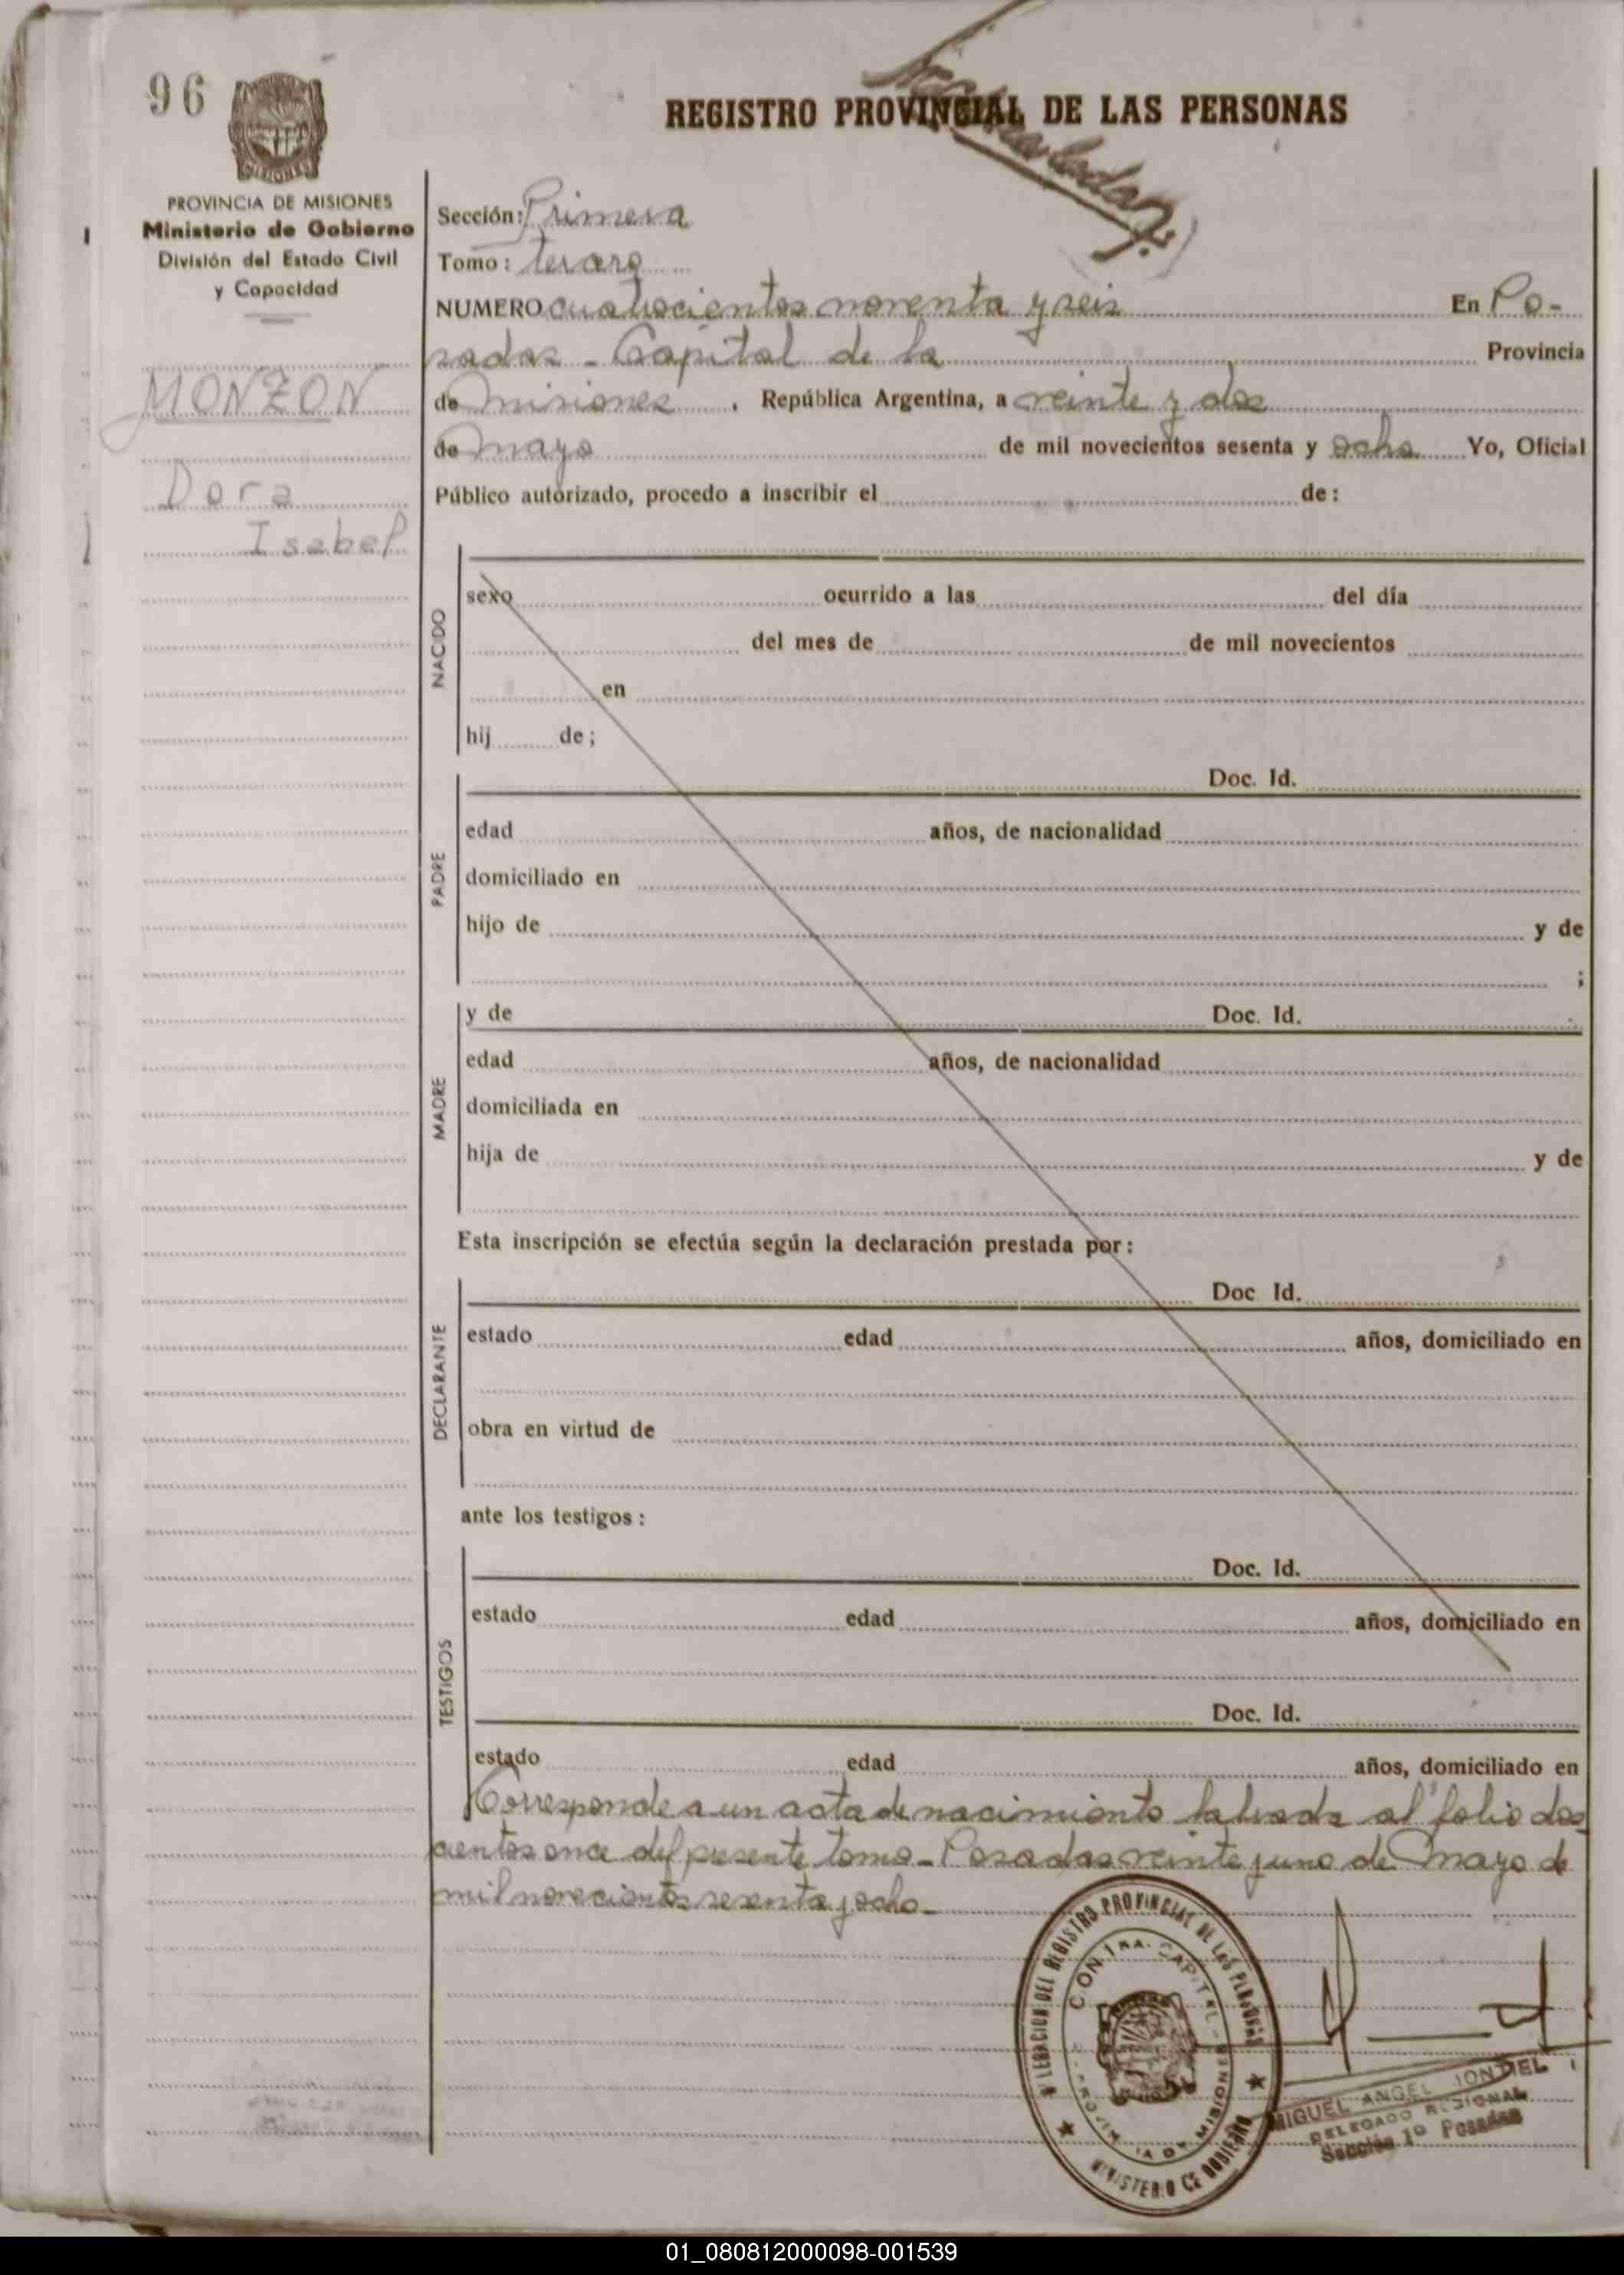 96
REGISTRO PROVINCIAL DE LAS PERSONAS
MISIONES
PROVINCIA DE MISIONES
Ministerio de Gobierno
División del Estado Civil
y Capacidad
MONZON
Dora
Isabel
Sección: Primera
Tomo: tercero
NUMERO cuatrocientos noventa y seis En Po-
sadas - Capital de la Provincia
de Misiones, República Argentina, a veinte y dos
de Mayo de mil novecientos sesenta y ocho Yo, Oficial
Público autorizado, procedo a inscribir el de:
NACIDO
sexo ocurrido a las del día
del mes de de mil novecientos
en
hij de;
PADRE
Doc. Id.
edad años, de nacionalidad
domiciliado en
hijo de y de
;
MADRE
y de Doc. Id.
edad años, de nacionalidad
domiciliada en
hija de y de
Esta inscripción se efectúa según la declaración prestada por:
DECLARANTE
Doc Id.
estado edad años, domiciliado en
obra en virtud de
ante los testigos:
TESTIGOS
Doc. Id.
estado edad años, domiciliado en
Doc. Id.
estado edad años, domiciliado en
Corresponde a un acta de nacimiento labrada al folio dos
cientos once del presente tomo - Posadas veinte y uno de Mayo de
mil novecientos sesenta y ocho -
DELEGACION DEL REGISTRO PROVINCIAL DE LAS PERSONAS
MINISTERIO DE GOBIERNO
MIGUEL ANGEL MONTIEL
DELEGADO REGIONAL
Sección 1º Posadas
01_080812000098-001539